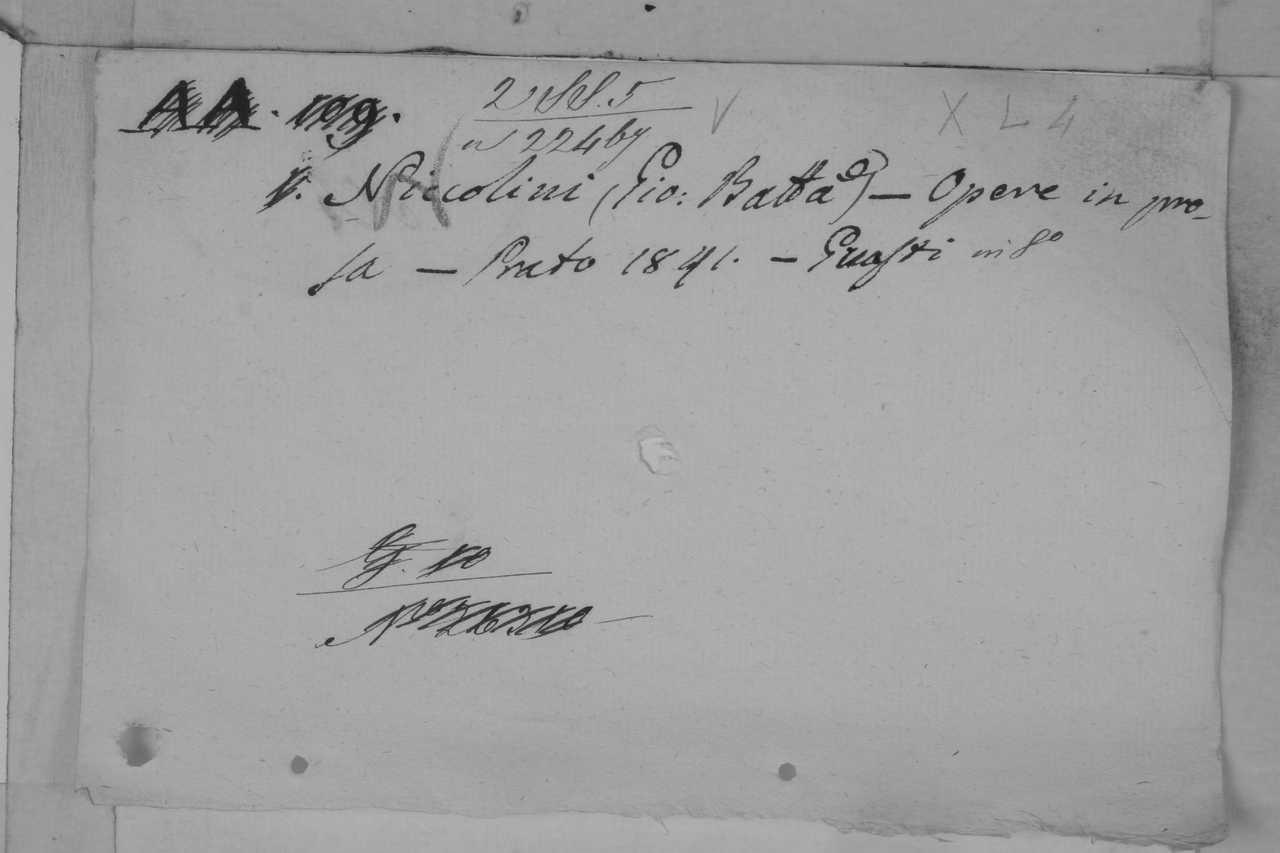 AA. 199.
2 SS. 5
n 22467
V
X L 4
Niccolini (Gio: Batta) — Opere in pro-
sa — Prato 1841. — Guasti in 8°
G. 10